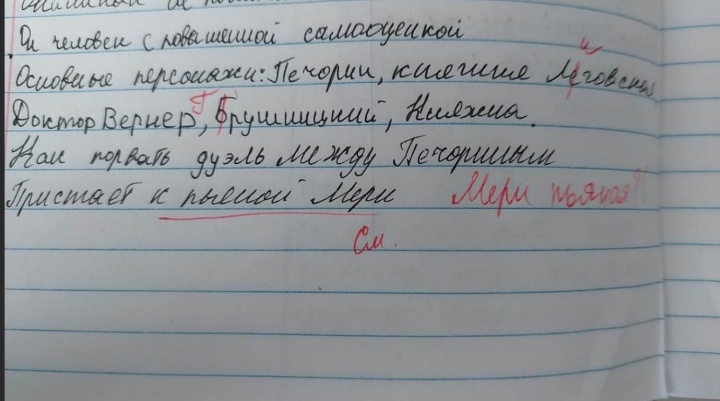 Он человек с повашенной самооценкой
и
Основные персонажи: Печорин, княгиня Лговская
Г
Доктор Вернер, Брушницкий, Княжна.
Как порвать дуэль между Печориным
Пристает к пьеной Мери Мери пьяная?!
См.